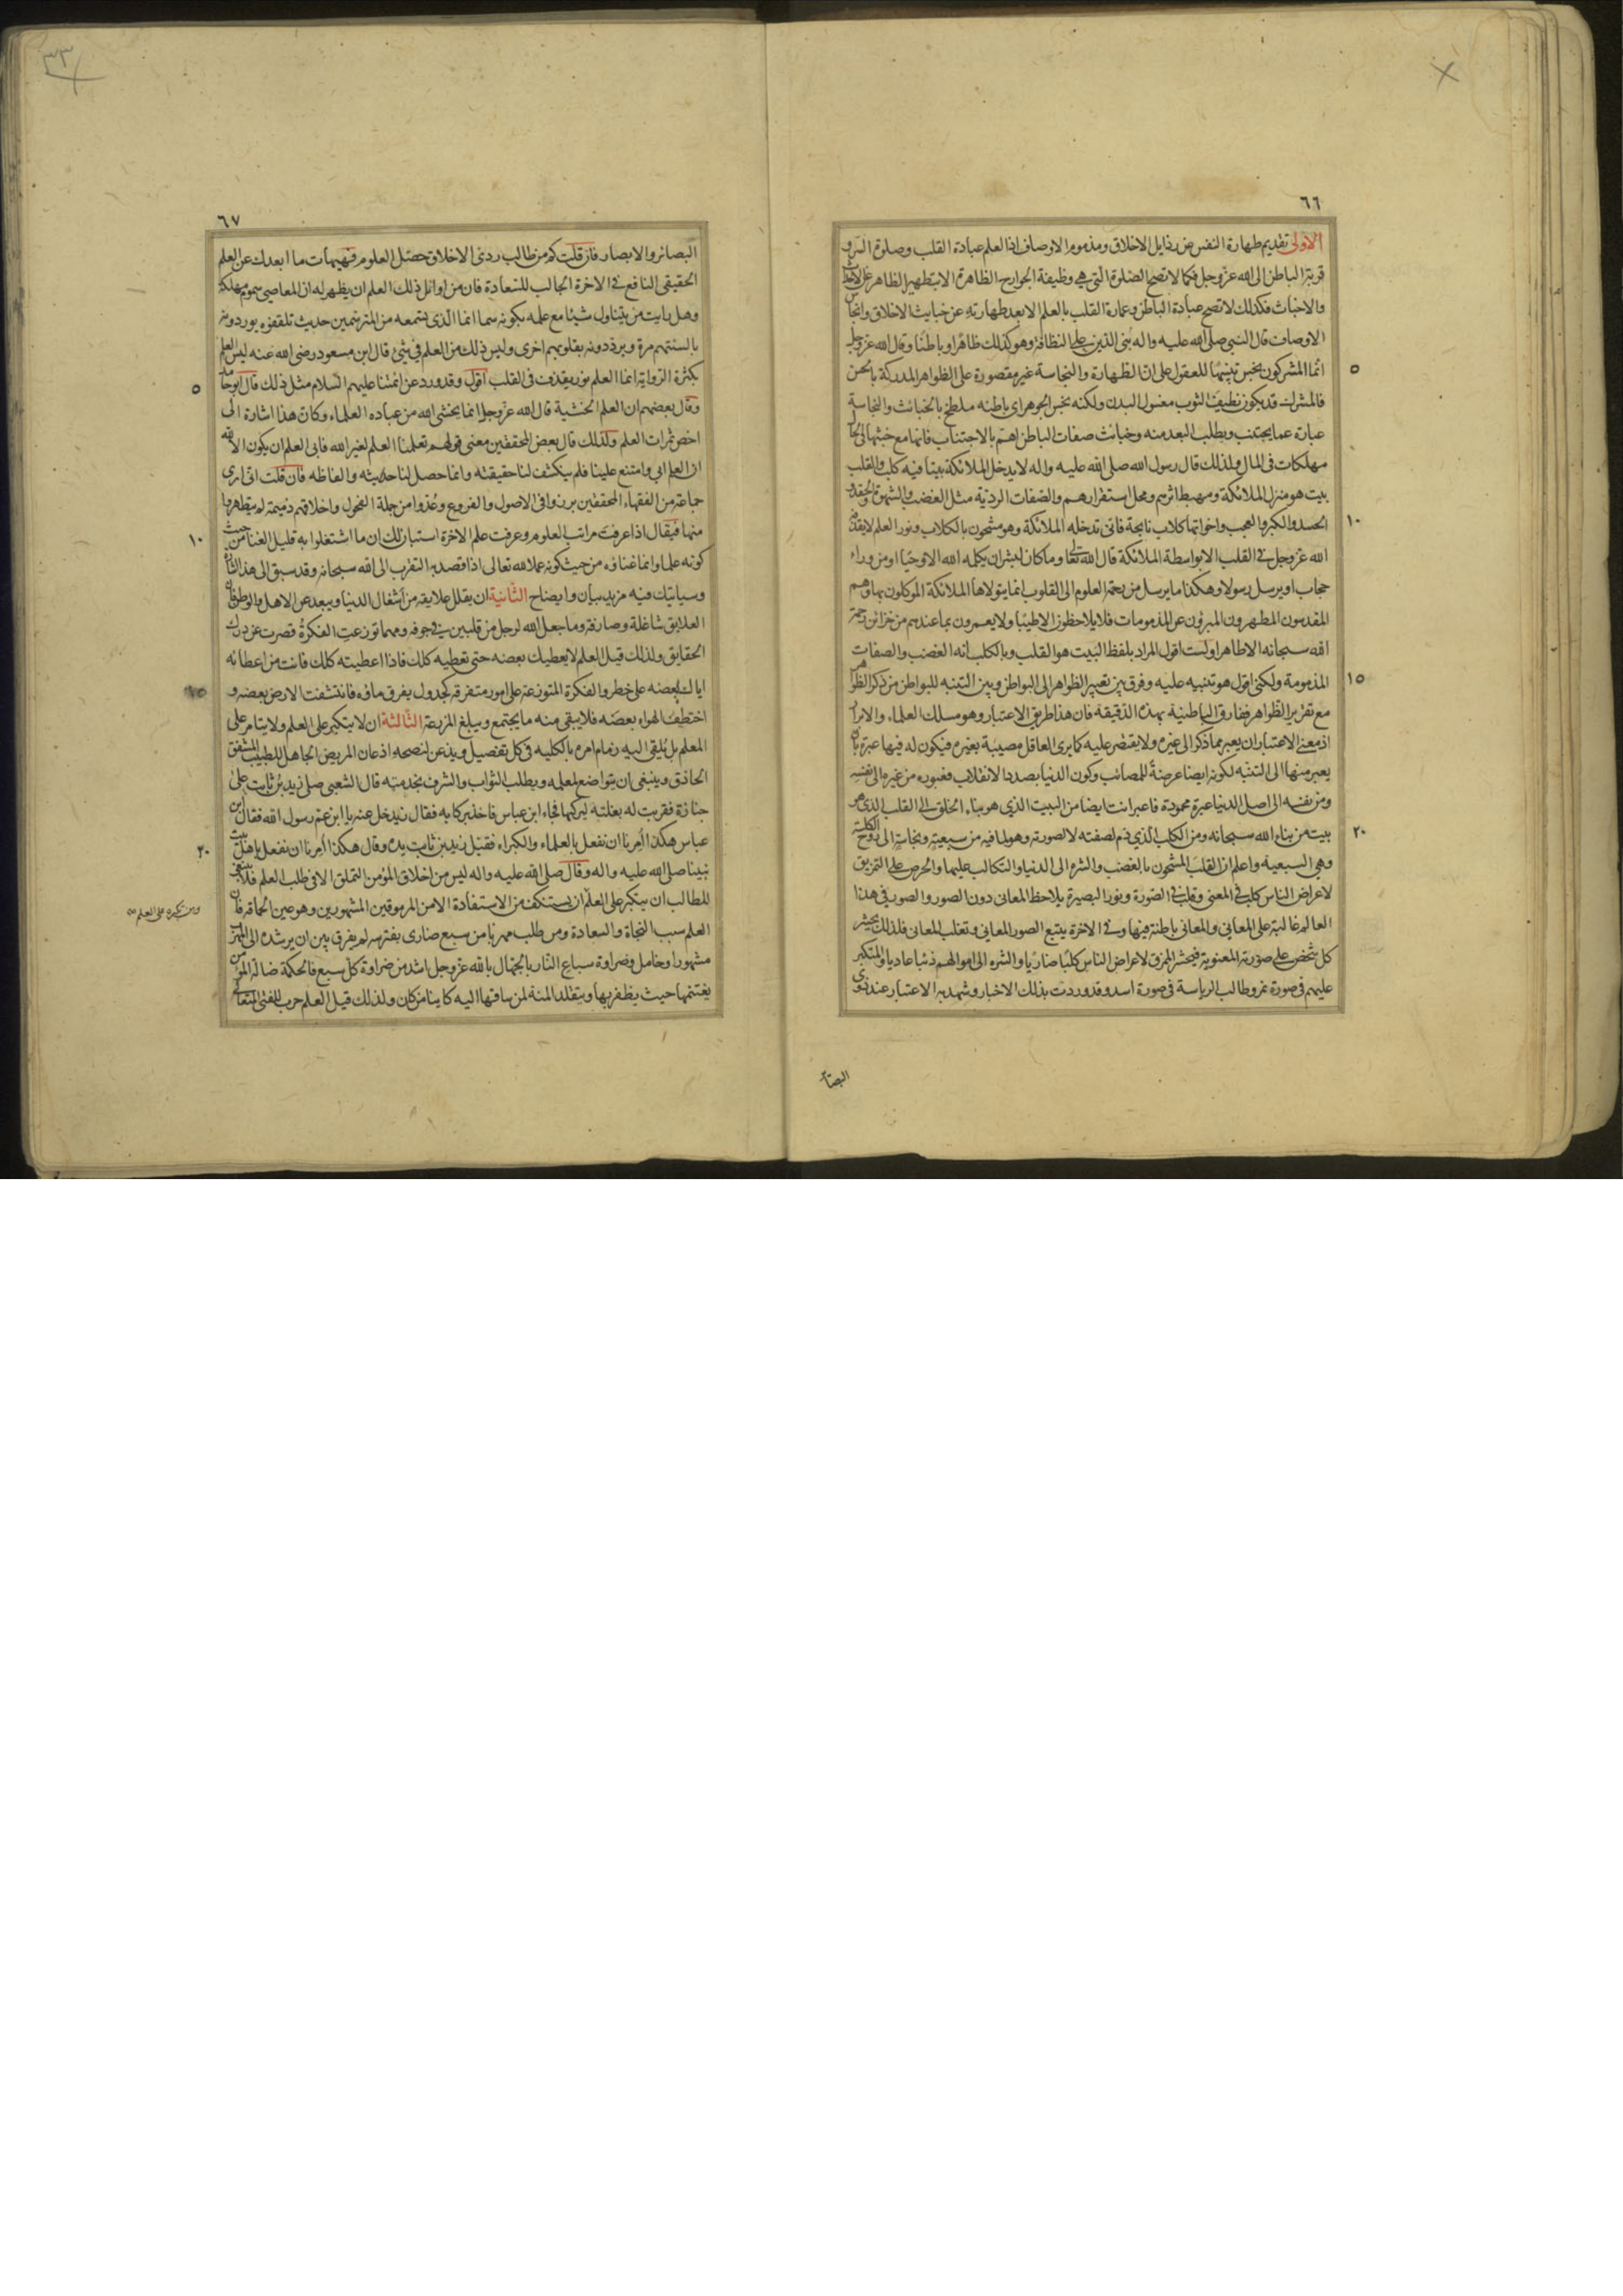 ٣٣
٦٦
الاولى تقديم طهارة النفس من رذايل الاخلاق ومذموم الاوصاف اذا العلم عبادة القلب وصلوة السر و
قربة الباطن الى الله عز وجل فكما لا تصح الصلوة التي هي وظيفة الجوارح الظاهرة الا بتطهير الظاهر عن الاحداث
والاخباث فكذلك لا تصح عبادة الباطن وعمارة القلب بالعلم الا بعد طهارته عن خبايث الاخلاق وانجاس
الاوصاف قال النبي صلى الله عليه واله بني الدين على النظافة وهو كذلك ظاهرا وباطنا وقال الله عز وجل
٥
انما المشركون نجس تنبيها للعقول على ان الطهارة والنجاسة غير مقصورة على الظواهر المدركة بالحس
فالمشرك قد يكون نظيف الثوب مغسول البدن ولكنه نجس الجوهر اى باطنه ملطخ بالخبائث والنجاسة
عبارة عما يجتنب ويطلب البعد منه وخبائث صفات الباطن اهم بالاجتناب فانها مع خبثها في الحال
مهلكات فى المال ولذلك قال رسول الله صلى الله عليه واله لا يدخل الملائكة بيتا فيه كلب والقلب
بيت هو منزل الملائكة ومهبط اثرهم ومحل استقرارهم والصفات الردية مثل الغضب والشهوة والحقد و
١٠
الحسد والكبر والعجب واخواتها كلاب نابحة فانى تدخله الملائكة وهو مشحون بالكلاب ونور العلم لا يقذفه
الله عز وجل في القلب الا بواسطة الملائكة قال الله تعا وما كان لبشر ان يكلمه الله الا وحيا او من وراء
حجاب او يرسل رسولا وهكذا ما يرسل من رحمة العلوم الى القلوب انما يتولاها الملائكة الموكلون بها وهم
المقدسون المطهرون المبرؤن عن المذمومات فلا يلاحظون الا طيبا ولا يعمرون بما عندهم من خزائن رحمة
الله سبحانه الا طاهرا ولست اقول المراد بلفظ البيت هو القلب وبالكلب انه الغضب والصفات
١٥
المذمومة ولكنى اقول هو تنبيه عليه وفرق بين تعبير الظواهر الى البواطن وبين التنبه للبواطن من ذكر الظواهر
مع تقرير الظواهر ففارق الباطنية بهذه الدقيقة فان هذا طريق الاعتبار وهو مسلك العلماء والابرار
اذ معنى الاعتبار ان يعبر مما ذكر الى غيره ولا يقتصر عليه كما يرى العاقل مصيبة بغيره فيكون له فيها عبرة بان
يعبر منها الى التنبه لكونه ايضا عرضة للمصائب وكون الدنيا بصدد الانقلاب فعبوره من غيره الى نفسه
ومن نفسه الى اصل الدنيا عبرة محمودة فاعبر انت ايضا من البيت الذي هو بناء الخلق الى القلب الذى هو
٢٠
بيت من بناء الله سبحانه ومن الكلب الذي ذم لصفته لا لصورته وهو لما فيه من سبعية ونجاسة الى روح الكلبية
وهي السبعية واعلم ان القلب المشحون بالغضب والشره الى الدنيا والتكالب عليها والحرص على التمزيق
لاعراض الناس كلب فى المعنى وقلب فى الصورة ونور البصيرة يلاحظ المعانى دون الصور والصور فى هذا
العالم غالبة على المعانى والمعانى باطنة فيها وفى الاخرة يتبع الصور المعانى وتغلب المعانى فلذلك يحشر
كل شخص على صورته المعنوية فيحشر الممزق لاعراض الناس كلبا ضاريا والشره الى اموالهم ذئبا عاديا والمتكبر
عليهم فى صورة نمر وطالب الرياسة فى صورة اسد وقد وردت بذلك الاخبار وشهد به الاعتبار عند ذوى
البصآ
٦٧
البصائر والابصار فان قلت كم من طالب ردى الاخلاق حصل العلوم فهيهات ما ابعدك عن العلم
الحقيقى النافع فى الاخرة الجالب للسعادة فان من اوائل ذلك العلم ان يظهر له ان المعاصى سموم مهلكة
وهل رايت من يتناول شيئا مع علمه بكونه سما انما الذى يستمعه من المترسمين حديث تلقفوه يوردونه
بالسنتهم مرة ويرددونه بقلوبهم اخرى وليس ذلك من العلم في شئ قال ابن مسعود رضى الله عنه ليس العلم
٥
بكثرة الرواية انما العلم نور يقذف فى القلب اقول وقد ورد عن ائمتنا عليهم السلام مثل ذلك قال ابو حامد
وقال بعضهم ان العلم الخشية قال الله عز وجل انما يخشى الله من عباده العلماء وكان هذا اشارة الى
اخص ثمرات العلم ولذلك قال بعض المحققين معنى قولهم تعلمنا العلم لغير الله فابى العلم ان يكون الا لله
ان العلم ابي وامتنع علينا فلم ينكشف لنا حقيقته وانما حصل لنا حديثه والفاظه فان قلت انى ارى
جماعة من الفقهاء المحققين برزوا فى الاصول والفروع وعدوا من جملة الفحول واخلاقهم ذميمة لم يتطهروا
١٠
منها فيقال اذا عرفت مراتب العلوم وعرفت علم الاخرة استبان لك ان ما اشتغلوا به قليل الغنا من حيث
كونه علما وانما غناؤه من حيث كونه عملا لله تعالى اذا قصد به التقرب الى الله سبحانه وقد سبق الى هذا اشارة
وسياتيك فيه مزيد بيان وايضاح الثانية ان يقلل علايقه من اشغال الدنيا ويبعد عن الاهل والوطن فان
العلايق شاغلة وصارفة وما جعل الله لرجل من قلبين في جوفه ومهما توزعت الفكرة قصرت عن درك
الحقايق ولذلك قيل العلم لا يعطيك بعضه حتى تعطيه كلك فاذا اعطيته كلك فانت من اعطائه
١٥
اياك بعضه على خطر والفكرة المتوزعة على امور متفرقة كجدول يفرق ماؤه فانتشفت الارض بعضه و
اختطف الهواء بعضه فلا يبقى منه ما يجتمع ويبلغ المزرعة الثالثة ان لا يتكبر على العلم ولا يتامر على
المعلم بل يلقى اليه زمام امره بالكليه فى كل تفصيل ويذعن لنصحه اذعان المريض الجاهل للطبيب المشفق
الحاذق وينبغى ان يتواضع لمعلمه ويطلب الثواب والشرف بخدمته قال الشعبى صلى زيد بن ثابت على
جنازة فقربت له بغلته ليركبها فجاء ابن عباس فاخذ بركابه فقال زيد خل عنه يا ابن عم رسول الله فقال ابن
٢٠
عباس هكذا امرنا ان نفعل بالعلماء والكبراء فقبل زيد بن ثابت يده وقال هكذا امرنا ان نفعل باهل بيت
نبينا صلى الله عليه واله وقال صلى الله عليه واله ليس من اخلاق المؤمن التملق الا فى طلب العلم فلا ينبغى
للطالب ان يتكبر على العلم ان يستنكف من الاستفادة الا من المرموقين المشهورين وهو عين الحماقة فان
ومن تكبره على العلم
العلم سبب النجاة والسعادة ومن طلب مهربا من سبع ضارى يفترسه لم يفرق بين ان يرشده الى الهرب
مشهور او خامل وضراوة سباع النار بالجهال بالله عز وجل اشد من ضراوة كل سبع فالحكمة ضالة المؤمن
يغتنمها حيث يظفر بها ويتقلد المنة لمن ساقها اليه كاينا من كان ولذلك قيل العلم حرب للفتى المتعالى